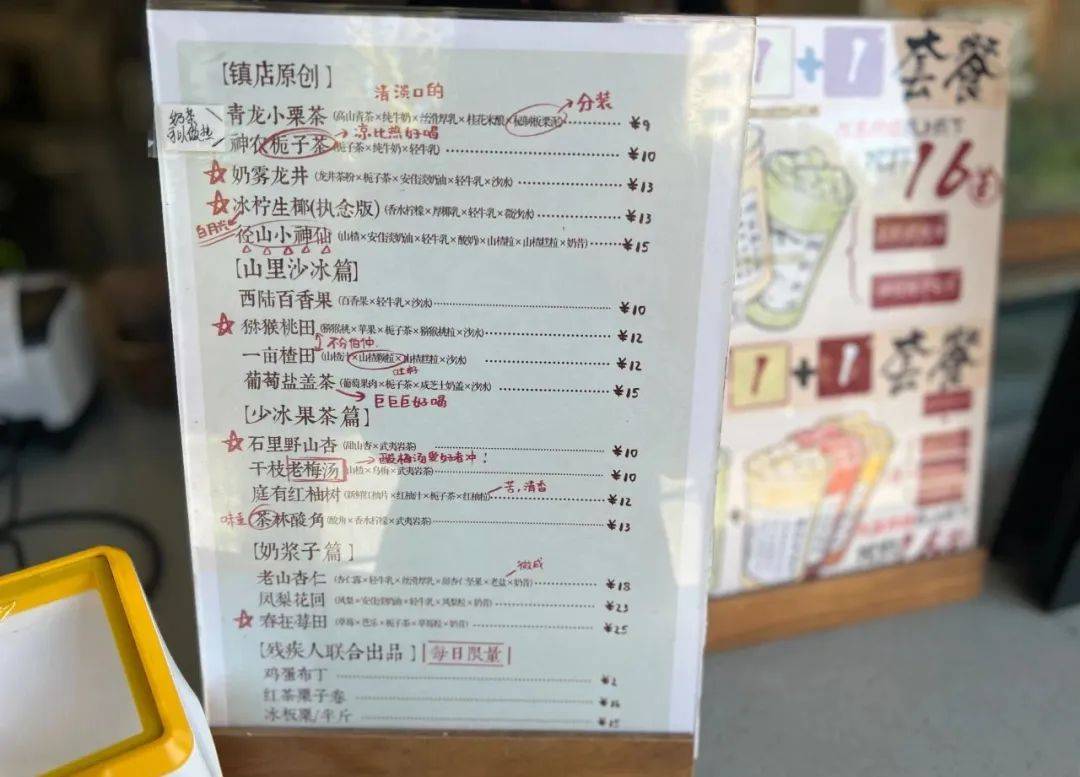 [镇店原创]
清淡口的
分装
奶茶
可以做热
青龙小栗茶 (高山青茶×纯牛奶×丝滑厚乳×桂花米酿×秘制板栗泥) ¥9
凉比热好喝
神农栀子茶 (栀子茶×纯牛奶×轻牛乳) ¥10
奶雾龙井 (龙井茶粉×栀子茶×安佳淡奶油×轻牛乳×沙冰) ¥13
冰柠生椰(执念版) (香水柠檬×厚椰乳×轻牛乳×微沙冰) ¥13
白月光
径山小神仙 (山楂×安佳淡奶油×轻牛乳×酸奶×山楂粒×山楂糕粒×奶昔) ¥15
[山里沙冰篇]
西陆百香果 (百香果×轻牛乳×沙冰) ¥10
猕猴桃田 (猕猴桃×苹果×栀子茶×猕猴桃粒×沙冰) ¥12
不分伯仲
一亩楂田 (山楂汁×山楂颗粒×山楂糕粒×沙冰) ¥12
葡萄盐盖茶 (葡萄果肉×栀子茶×咸芝士奶盖×沙冰) ¥15
巨巨巨好喝
[少冰果茶篇]
石里野山杏 (甜山杏×武夷岩茶) ¥10
酸梅汤爱好者冲!
千枝老梅汤 (山楂×乌梅×武夷岩茶) ¥10
苦,清香
庭有红柚树 (新鲜红柚片×红柚汁×栀子茶×红柚粒) ¥12
味重
茶林酸角 (酸角×香水柠檬×武夷岩茶) ¥13
[奶浆子篇]
微咸
老山杏仁 (杏仁露×轻牛乳×丝滑厚乳×甜杏仁坚果×老盐×奶昔) ¥18
凤梨花回 (凤梨×安佳淡奶油×轻牛乳×凤梨粒×奶昔) ¥23
春在莓田 (草莓×芭乐×栀子茶×草莓粒×奶昔) ¥25
[残疾人联合出品] 每日限量
鸡蛋布丁 ¥2
红茶栗子卷 ¥16
冰板栗/半斤 ¥15
1+1 套餐
16
1+1 套餐